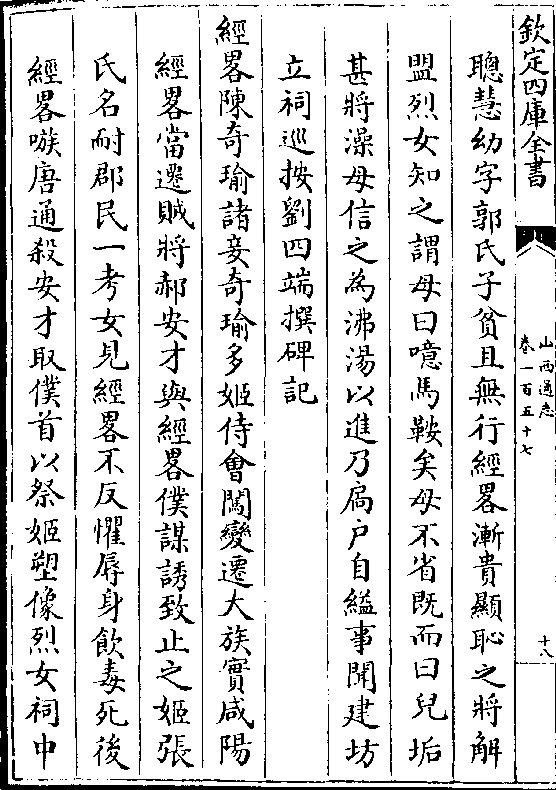 欽定四庫全書
山西通志
卷一百五十七
十八
聰慧幼字郭氏子貧且無行經畧漸貴顯恥之將解
盟烈女知之謂母曰噫馬鞍矣母不省既而曰兒垢
甚將澡母信之為沸湯以進乃扃户自縊事聞建坊
立祠巡按劉四端撰碑記
經畧陳奇瑜諸妾奇瑜多姬侍會闖變遷大族實咸陽
經畧當遷賊將郝安才與經畧僕謀誘致止之姬張
氏名耐郡民一考女見經畧不反懼辱身飲毒死後
經畧嗾唐通殺安才取僕首以祭姬塑像烈女祠中